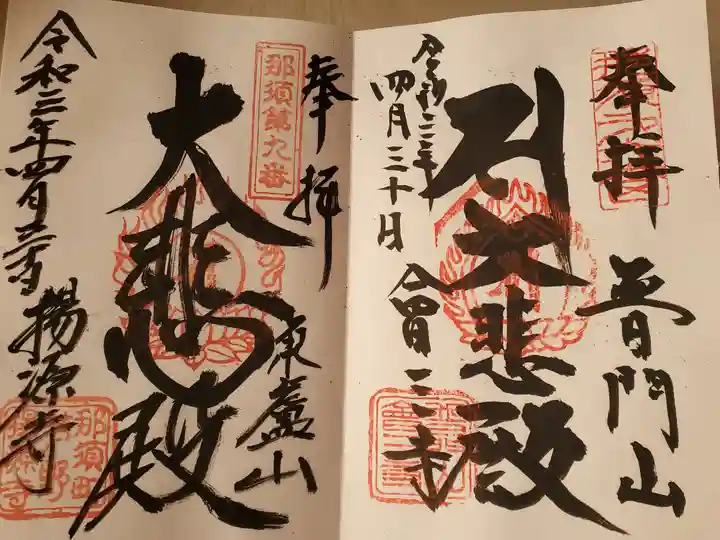 奉拝
普門山
大悲殿
令和三年
四月三十日
會三寺
奉拝
那須第九番
東盧山
大悲殿
令和三年四月三十日
揚源寺
那須町